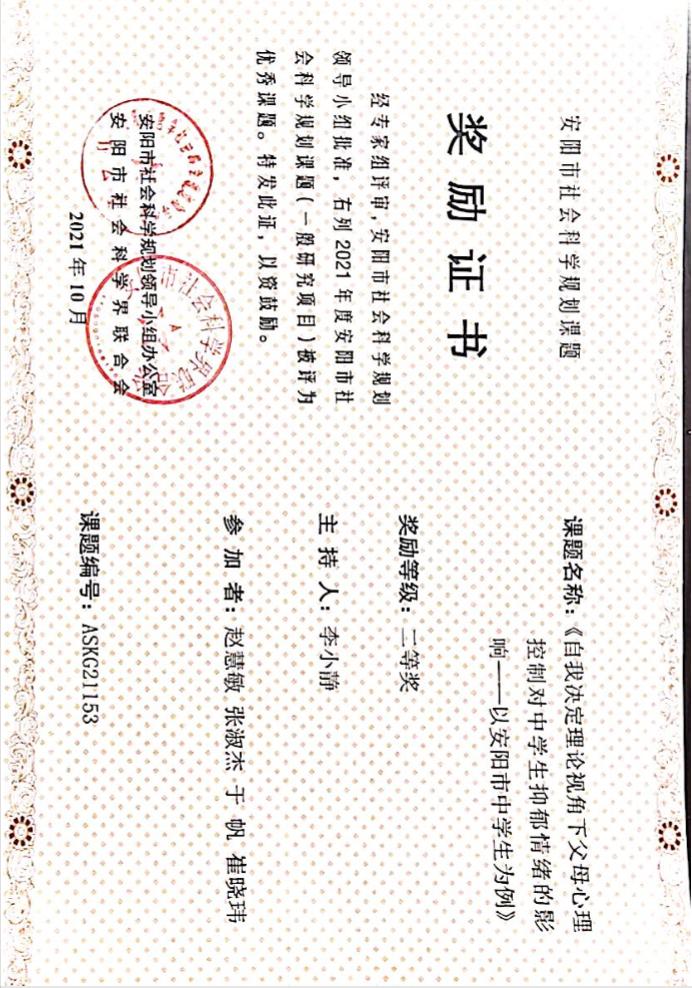 安阳市社会科学规划课题
奖励证书
经专家组评审,安阳市社会科学规划
领导小组批准,右列2021年度安阳市社
会科学规划课题(一般研究项目)被评为
优秀课题。特发此证,以资鼓励。
安阳市社会科学规划领导小组办公室
安阳市社会科学界联合会
2021年10月
课题名称:《自我决定理论视角下父母心理
控制对中学生抑郁情绪的影
响——以安阳市中学生为例》
奖励等级:二等奖
主持人:李小静
参加者:赵慧敏 张淑杰 于帆 崔晓玮
课题编号:ASKG21153